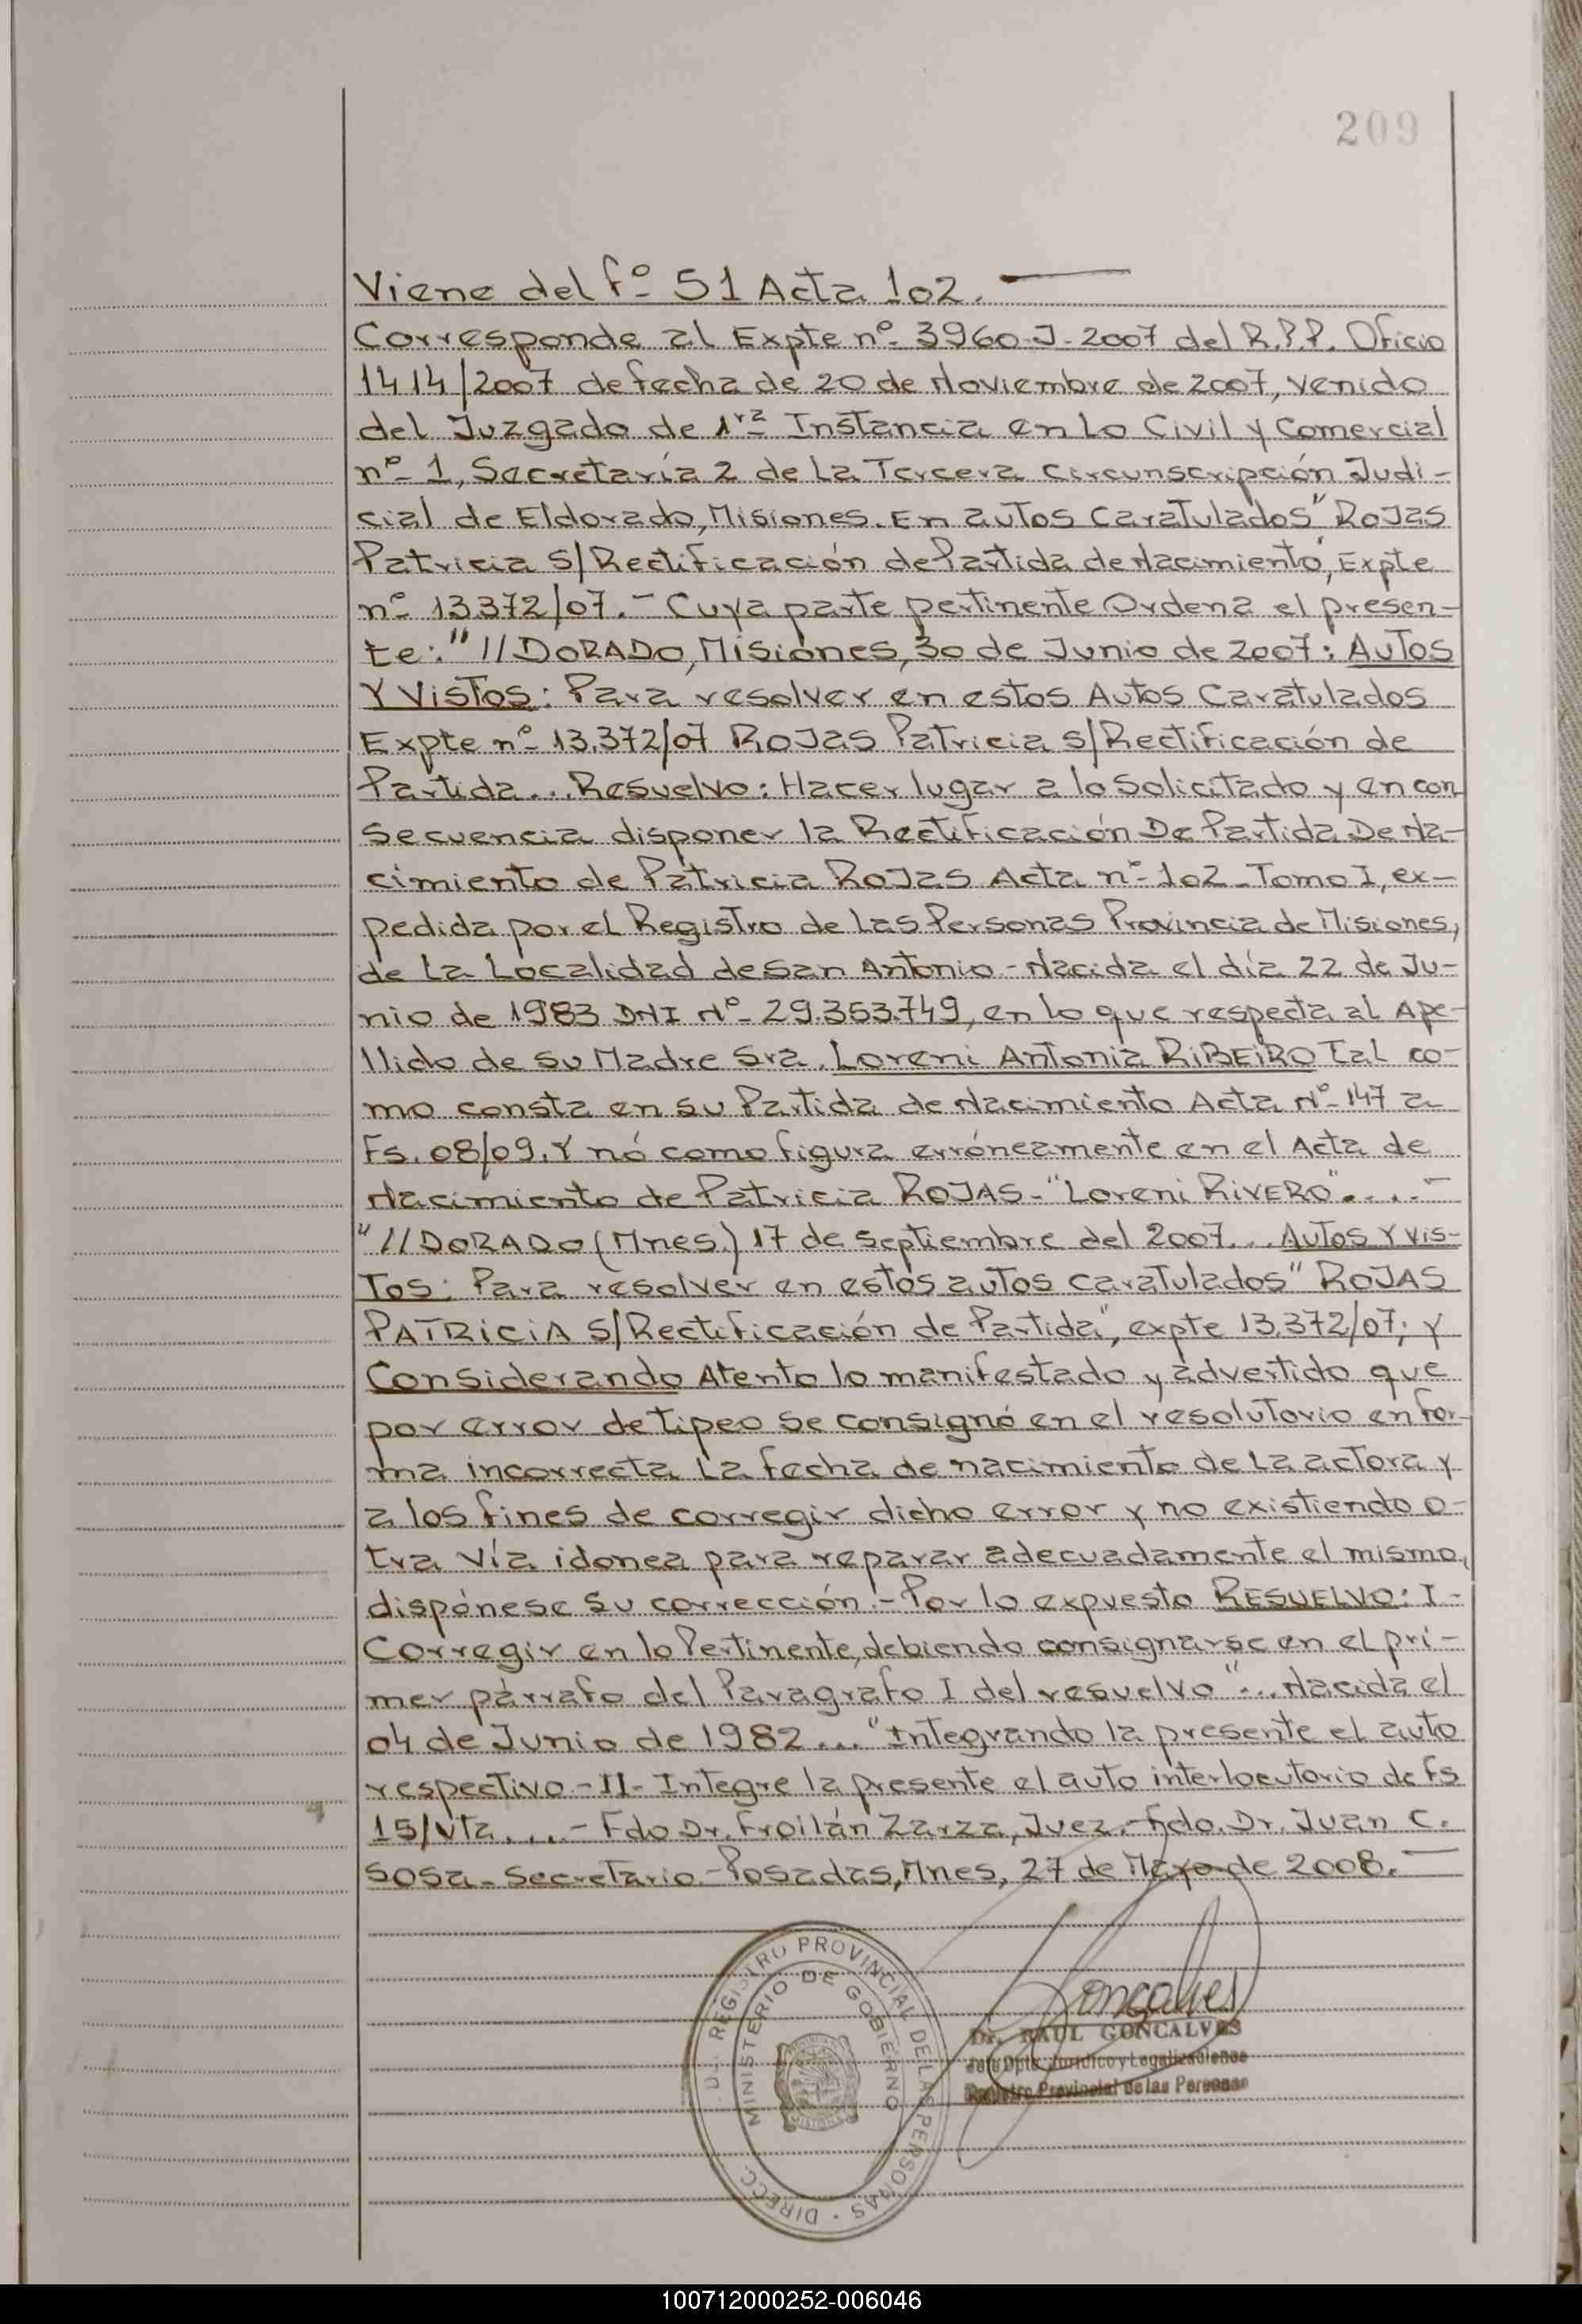 209
Viene del fº 51 Acta 102.
Corresponde al Expte nº 3960-J-2007 del R.P.P. Oficio
1414/2007 de fecha de 20 de Noviembre de 2007, venido
del Juzgado de 1ra Instancia en Lo Civil y Comercial
nº 1, Secretaría 2 de La Tercera Circunscripción Judi-
cial de Eldorado, Misiones. En autos Caratulados "ROJAS
Patricia S/Rectificación de Partida de Nacimiento", Expte
nº 13.372/07.- Cuya parte pertinente Ordena el presen-
te: "//DORADO, Misiones, 30 de Junio de 2007: AUTOS
Y VISTOS: Para resolver en estos Autos Caratulados
Expte nº 13.372/07 ROJAS Patricia S/Rectificación de
Partida... Resuelvo: Hacer lugar a lo Solicitado y en con
secuencia disponer la Rectificación De Partida De Na-
cimiento de Patricia ROJAS Acta nº 102-Tomo I, ex-
pedida por el Registro de Las Personas Provincia de Misiones,
de La Localidad de San Antonio - Nacida el día 22 de Ju-
nio de 1983 DNI Nº 29.353.749, en lo que respecta al Ape-
llido de su Madre Sra. Loreni Antonia RIBEIRO Tal co-
mo consta en su Partida de Nacimiento Acta Nº 147 a
Fs. 08/09. Y nó como figura erróneamente en el Acta de
Nacimiento de Patricia ROJAS-"Loreni RIVERO".....-
"//DORADO (Mnes.) 17 de Septiembre del 2007... AUTOS Y VIS-
TOS: Para resolver en estos autos caratulados "ROJAS
PATRICIA S/Rectificación de Partida", expte 13.372/07; Y
Considerando Atento lo manifestado y advertido que
por error de tipeo se consignó en el resolutorio en for-
ma incorrecta La fecha de nacimiento de La actora y
a los fines de corregir dicho error y no existiendo o-
tra vía idonea para reparar adecuadamente el mismo,
dispónese su corrección.- Por lo expuesto RESUELVO: I-
Corregir en lo Pertinente, debiendo consignarse en el pri-
mer párrafo del Paragrafo I del resuelvo "... Nacida el
04 de Junio de 1982..." Integrando la presente el auto
respectivo.-II- Integre la presente el auto interlocutorio de fs
15/Vta....- Fdo Dr. Froilán Zarza, Juez.- Fdo. Dr. Juan C.
SOSA - Secretario.- Posadas, Mnes, 27 de Mayo de 2008.
DIRECC. D. REGISTRO PROVINCIAL DE LAS PERSONAS
MINISTERIO DE GOBIERNO
Goncalves
Dr. RAUL GONCALVES
Jefe Dpto. Jurídico y Legalizaciones
Registro Provincial de las Personas
100712000252-006046